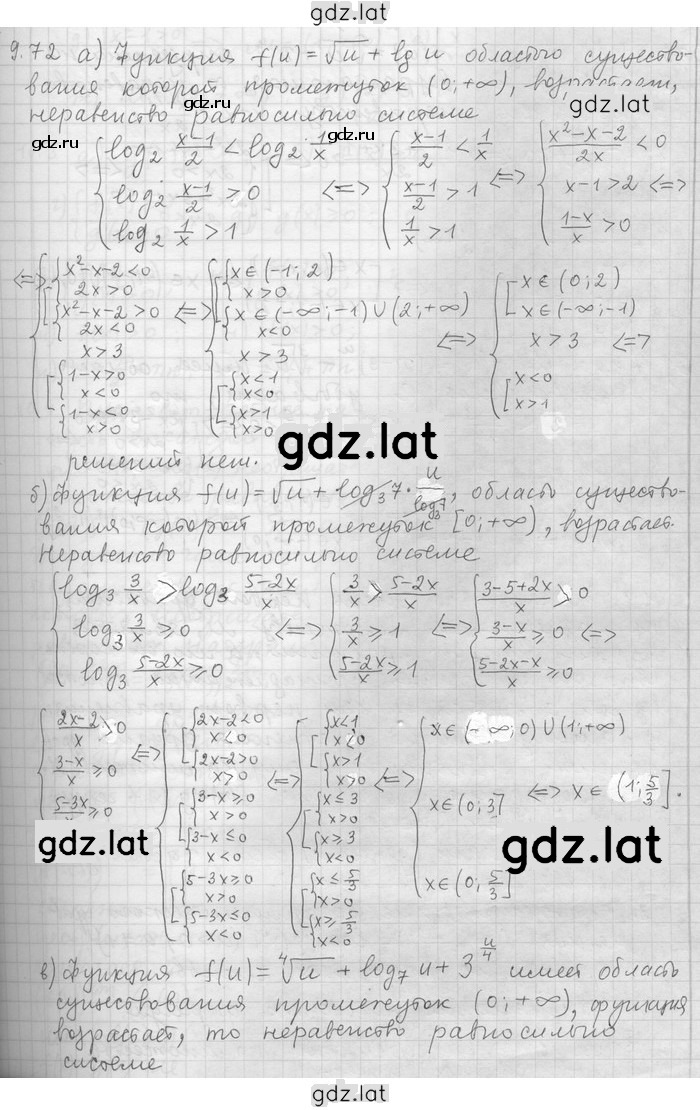 gdz.lat
9.72 а) Функция f(u) = √u + lg u областью существо-
вания которой промежуток (0; +∞), возрастает,
неравенство равносильно системе
gdz.ru
gdz.ru
gdz.lat
gdz.ru
{ log₂ (x-1)/2 < log₂ 1/x ; log₂ (x-1)/2 > 0 ; log₂ 1/x > 1 <=> { (x-1)/2 < 1/x ; (x-1)/2 > 1 ; 1/x > 1 <=> { (x²-x-2)/2x < 0 ; x-1>2 ; (1-x)/x > 0 <=>
<=> { [ { x²-x-2<0 ; 2x>0 ; { x²-x-2>0 ; 2x<0 ; x>3 ; [ { 1-x>0 ; x<0 ; { 1-x<0 ; x>0 <=> { [ { x∈(-1; 2) ; x>0 ; { x∈(-∞;-1)∪(2;+∞) ; x<0 ; x>3 ; [ { x<1 ; x<0 ; { x>1 ; x>0 <=> { [ x∈(0;2) ; x∈(-∞;-1) ; x>3 ; [ x<0 ; x>1 <=>
gdz.lat
решений нет.
б) Функция f(u) = √u + log₃7 · u/log₃7, область существо-
вания которой промежуток [0; +∞), возрастает.
Неравенство равносильно системе
{ log₃ 3/x > log₃ (5-2x)/x ; log₃ 3/x ⩾ 0 ; log₃ (5-2x)/x ⩾ 0 <=> { 3/x > (5-2x)/x ; 3/x ⩾ 1 ; (5-2x)/x ⩾ 1 <=> { (3-5+2x)/x > 0 ; (3-x)/x ⩾ 0 ; (5-2x-x)/x ⩾ 0 <=>
{ (2x-2)/x > 0 ; (3-x)/x ⩾ 0 ; (5-3x)/x ⩾ 0 <=> { [ { 2x-2<0 ; x<0 ; { 2x-2>0 ; x>0 ; [ { 3-x⩾0 ; x>0 ; { 3-x⩽0 ; x<0 ; [ { 5-3x⩾0 ; x>0 ; { 5-3x⩽0 ; x<0 <=> { [ { x<1 ; x<0 ; { x>1 ; x>0 ; [ { x⩽3 ; x>0 ; { x⩾3 ; x<0 ; [ { x⩽5/3 ; x>0 ; { x⩾5/3 ; x<0 <=> { x∈(-∞;0)∪(1;+∞) ; x∈(0;3] ; x∈(0; 5/3] <=> x∈(1; 5/3].
gdz.lat
gdz.lat
в) Функция f(u) = ⁴√u + log₇ u + 3^(u/4) имеет область
существования промежуток (0; +∞), функция
возрастает, то неравенство равносильно
системе
gdz.lat